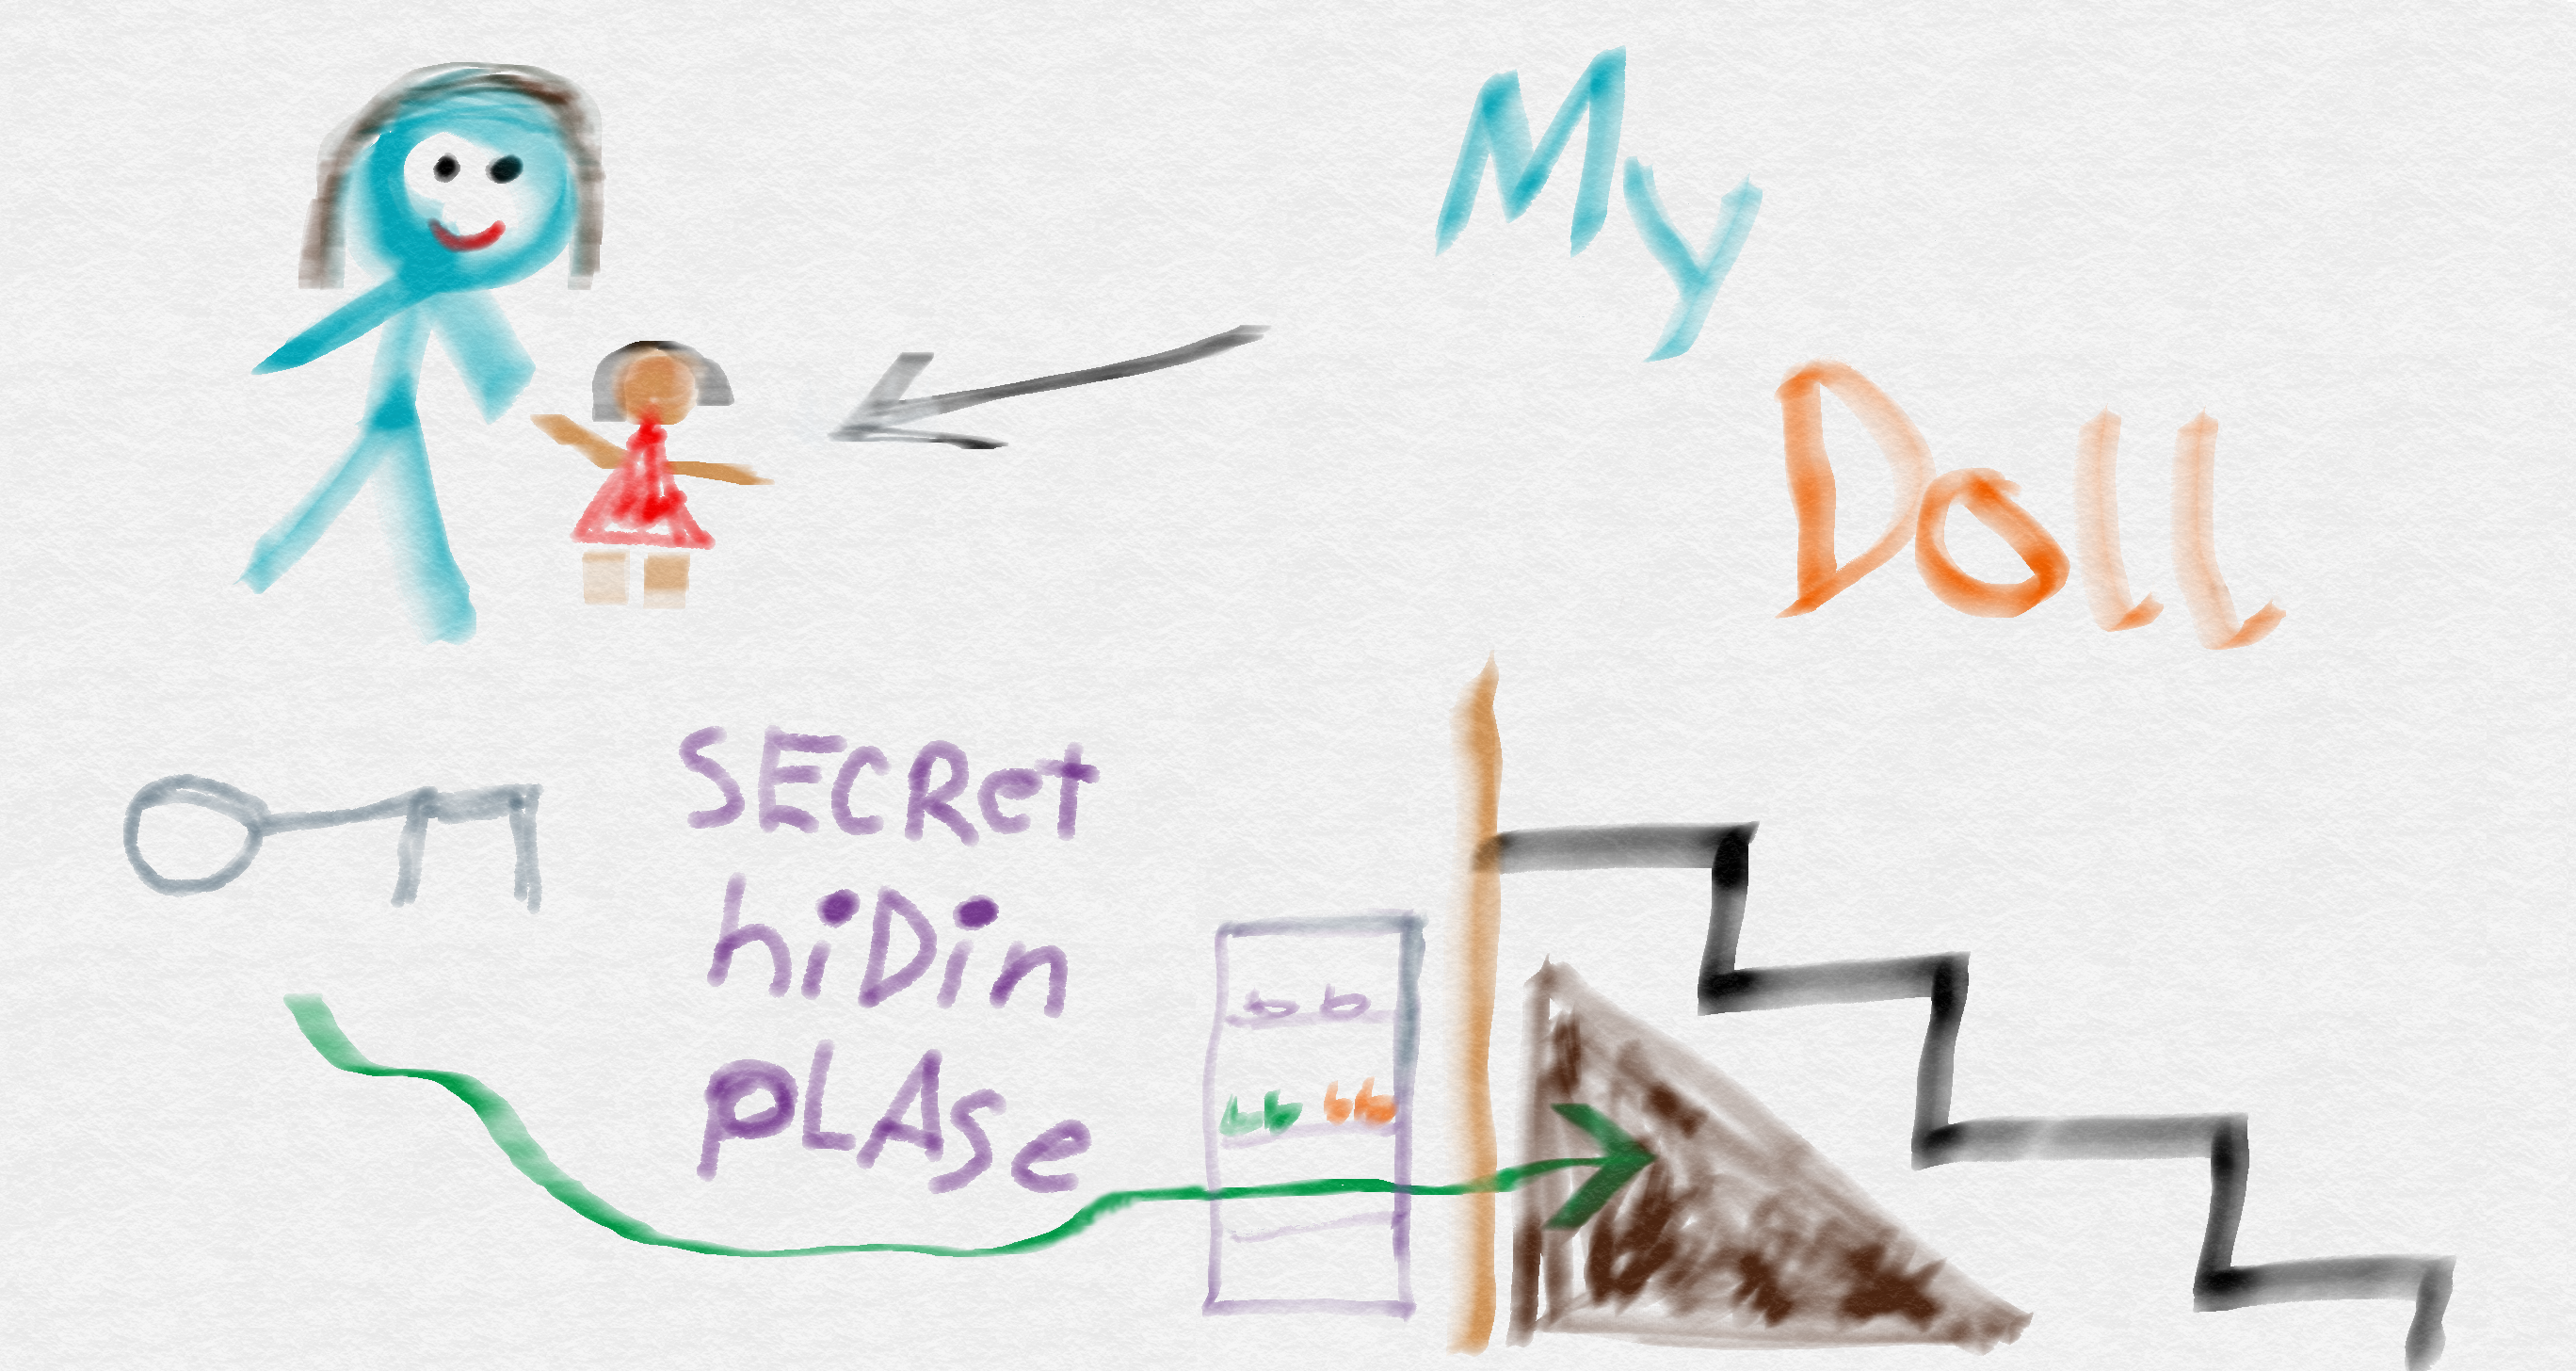 My
Doll
SECRet
hiDin
pLASe